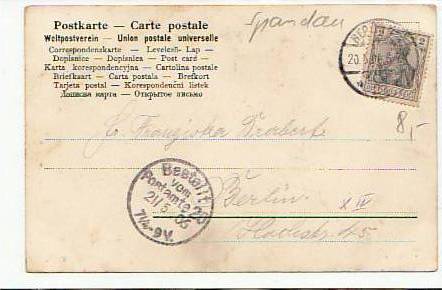 Spandau
Postkarte — Carte postale
Weltpostverein — Union postale universelle
Correspondenzkarte — Levelező-Lap —
Dopisnice — Dopisnica — Post card —
Karta korespondencyjna — Cartolina postale
Briefkaart — Carta postala — Brefkort
Tarjeta postal — Korespondenční listek
Дописна карта — Открытое письмо
BERLIN
20.5.
8,-
Franziska
Bestellt
vom
Postamte 20
21/5. 05
7¼-9V.
Berlin
X IV